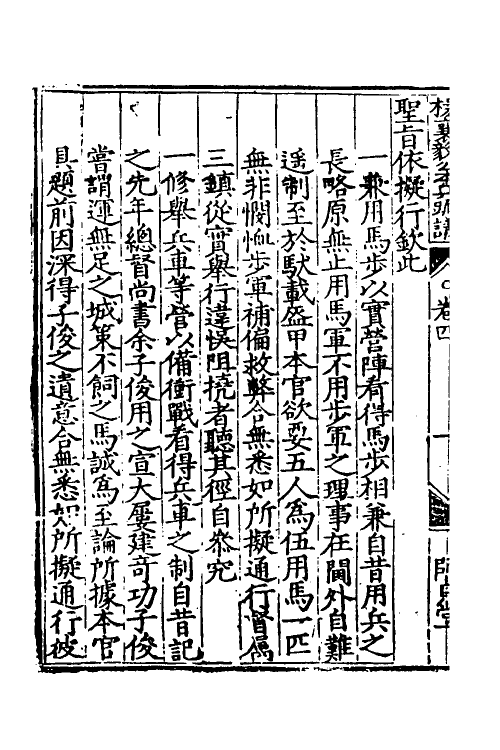 聖旨依擬行欽此
一兼用馬步以實營陣看得馬步相兼自昔用兵之
長略原無止用馬軍不用步軍之理事在閫外自難
遥制至於馱載盔甲本官欲要五人為伍用馬一匹
無非憫恤步軍補偏救弊合無悉如所擬通行督屬
三鎮從實舉行違悞阻撓者聽其徑自叅究
一修舉兵車等營以備衝戰看得兵車之制自昔記
之先年總督尚書余子俊用之宣大屡建奇功子俊
嘗謂運無足之城策不飼之馬誠為至論所據本官
具題前因深得子俊之遺意合無悉如所擬通行彼
卷四
一